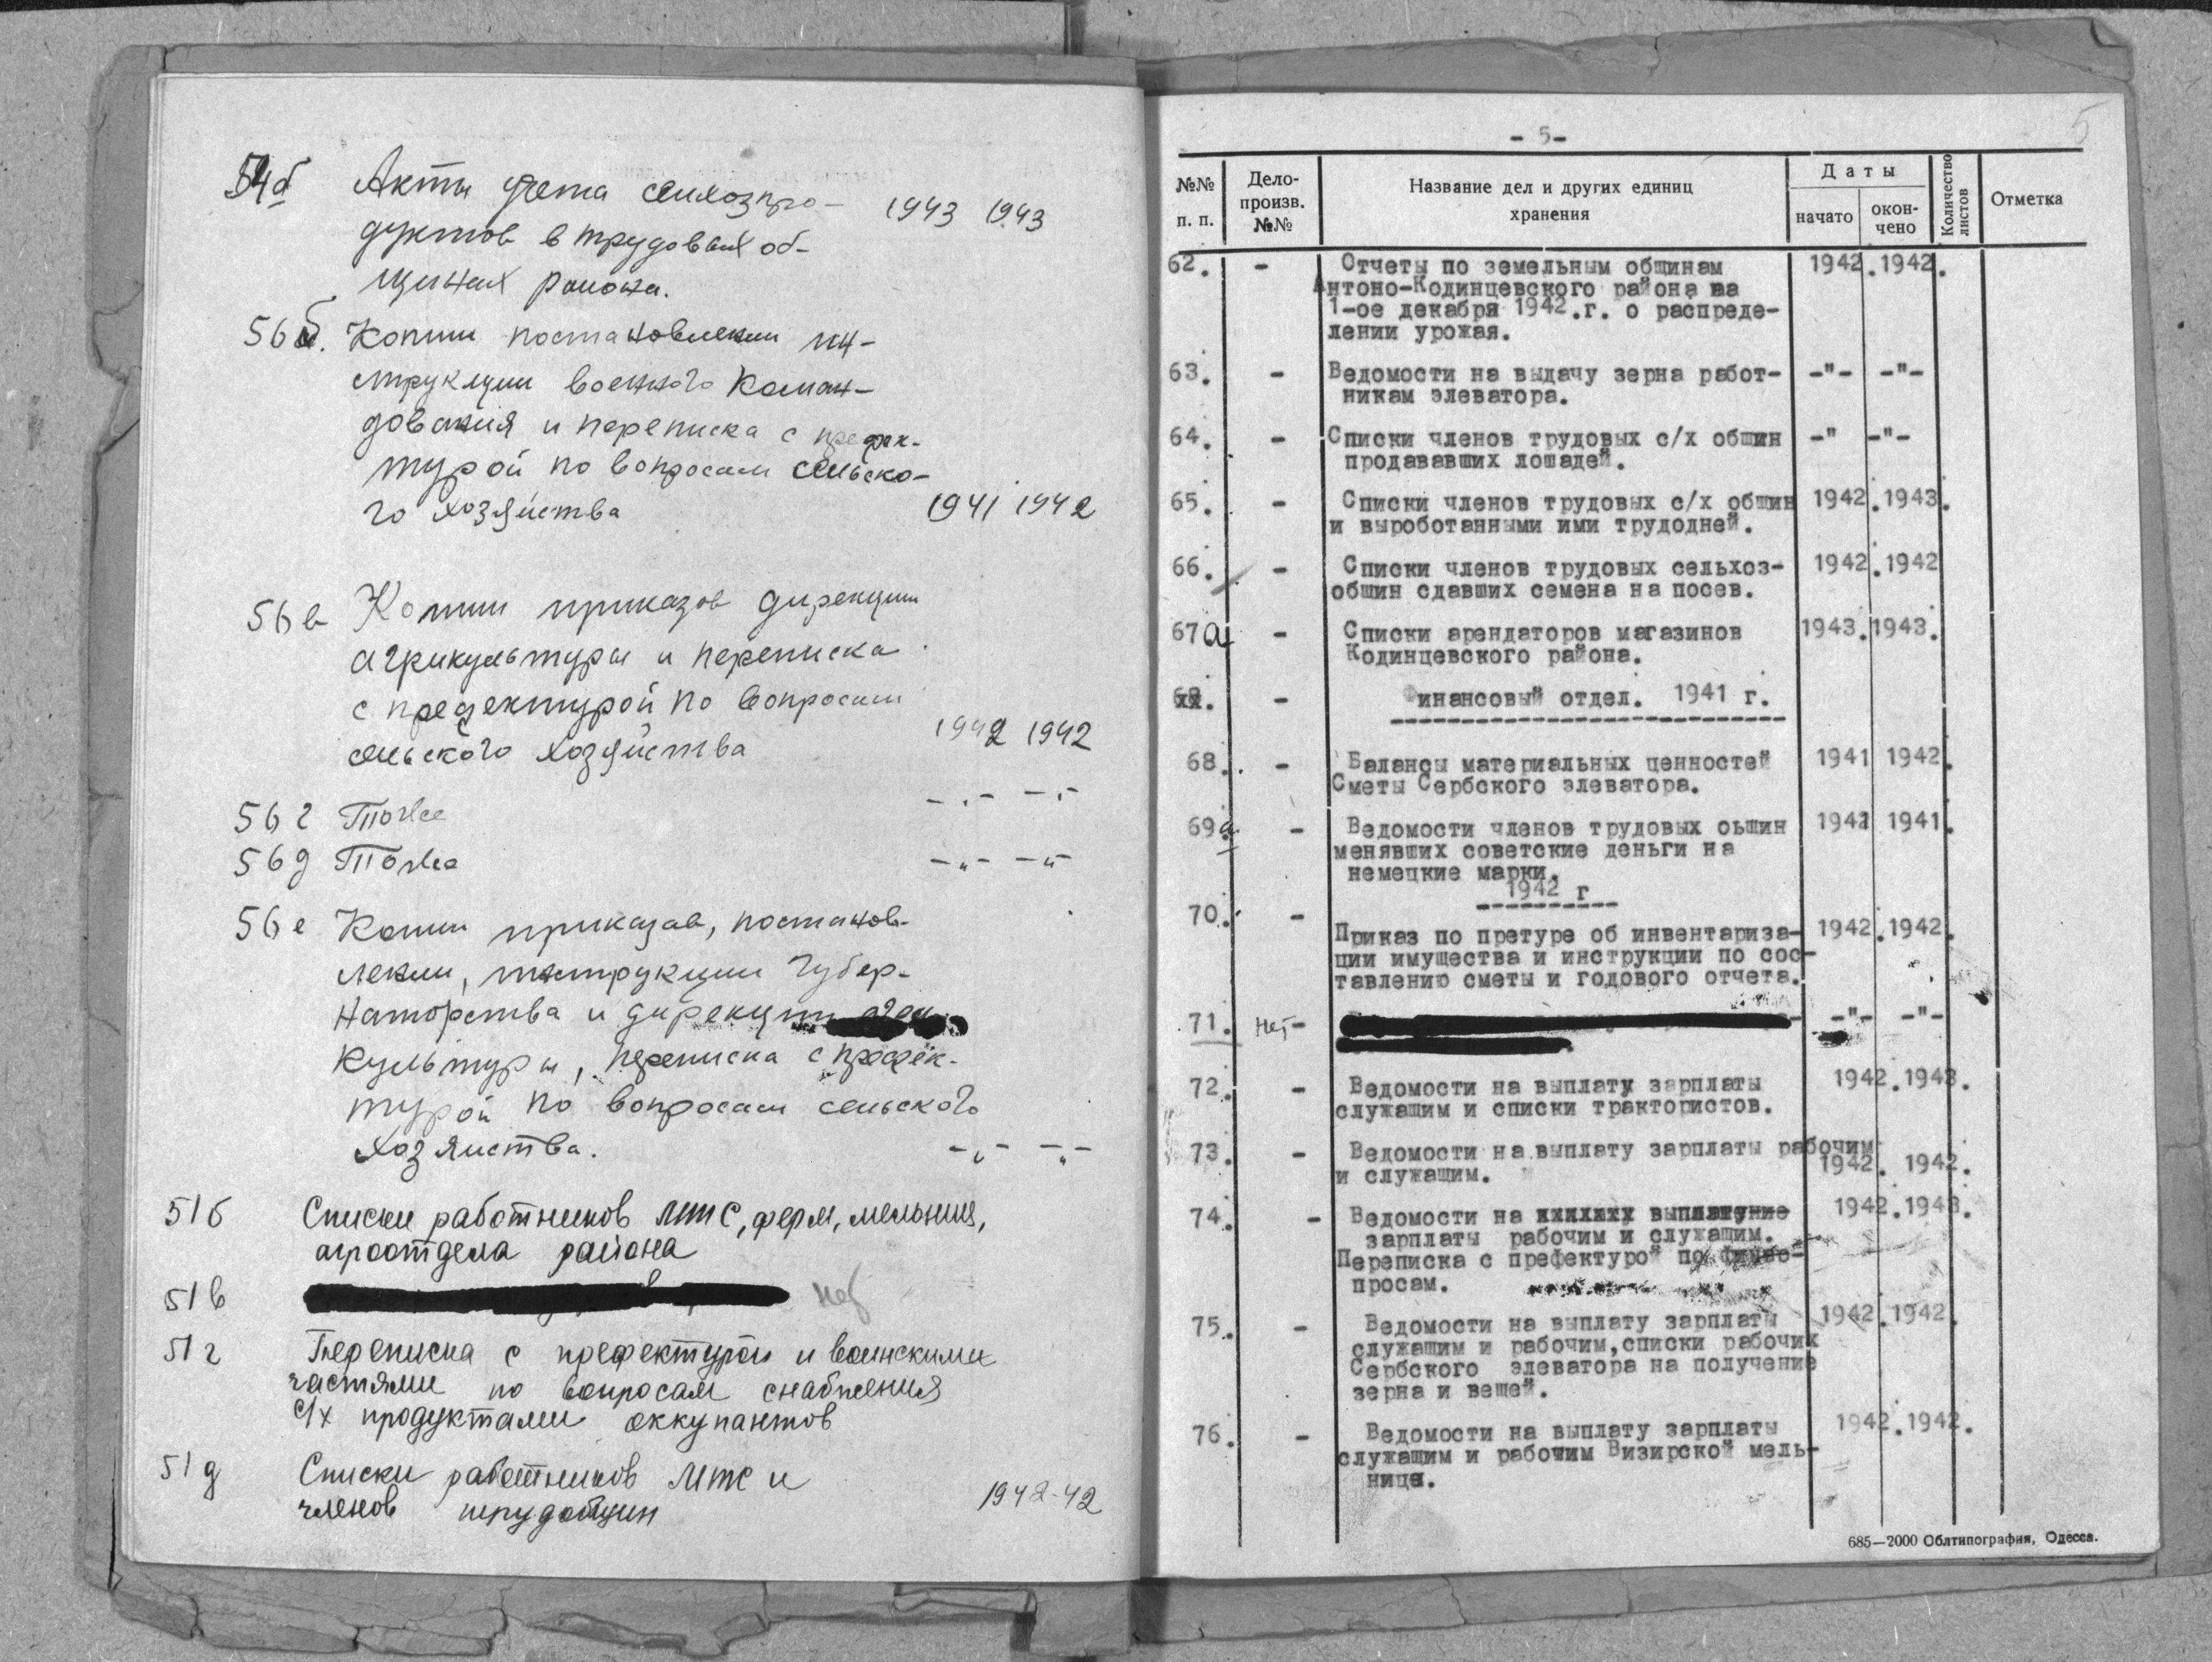 54б Акты учета сельхозпро- 1943 1943
дуктов в трудовых об-
щинах района.
56б. Копии постановлении ин-
струкции военного Коман-
дования и переписка с префек-
турой по вопросам сельско-
го хозяйства 1941 1942
56в Копии приказов дирекции
агрикультуры и переписка
с префектурой по вопросам
сельского хозяйства 1942 1942
56г Тоже -"- -"-
56д Тоже -"- -"-
56е Копии приказов, постанов-
лении, инструкции Губер-
наторства и дирекции
культуры, переписка с префек-
турой по вопросам сельского
хозяиства. -"- -"-
51б Списки работников МТС, ферм, мельниц,
агроотдела района
51в нет
51г Переписка с префектурой и воинскими
частями по вопросам снабжения
с/х продуктами оккупантов
51д Списки работников МТС и
членов трудобщин 1942-42
5
- 5-
№№ п. п.
Дело-произв. №№
Название дел и других единиц хранения
Даты
начато
окон-чено
Количество листов
Отметка
62. - Отчеты по земельным общинам 1942.1942.
Антоно-Кодинцевского района на
1-ое декабря 1942.г. о распреде-
лении урожая.
63. - Ведомости на выдачу зерна работ- -"- -"-
никам элеватора.
64. - Списки членов трудовых с/х общин -" -"-
продававших лошадей.
65. - Списки членов трудовых с/х общин 1942.1943.
и выроботанными ими трудодней.
66. - Списки членов трудовых сельхоз- 1942.1942
общин сдавших семена на посев.
67а - Списки арендаторов магазинов 1943.1943.
Кодинцевского района.
- Финансовый отдел. 1941 г.
68. - Балансы материальных ценностей 1941 1942.
Сметы Сербского элеватора.
69а - Ведомости членов трудовых оьщин 1941 1941.
менявших советские деньги на
немецкие марки.
1942 г
70. -
Приказ по претуре об инвентариза- 1942.1942.
ции имущества и инструкции по сос-
тавлению сметы и годового отчета.
71. Нет- -"- -"-
72. - Ведомости на выплату зарплаты 1942.1943.
служащим и списки трактористов.
73. - Ведомости на выплату зарплаты рабочим
и служащим. 1942. 1942.
74. - Ведомости на 1942.1943.
зарплаты рабочим и служащим.
Переписка с префектурой по
просам.
75. - Ведомости на выплату зарплаты 1942.1942.
служащим и рабочим,списки рабочих
Сербского элеватора на получение
зерна и вещей.
76. - Ведомости на выплату зарплаты 1942.1942.
служащим и рабочим Визирской мель-
ницы.
685—2000 Облтипография, Одесса.